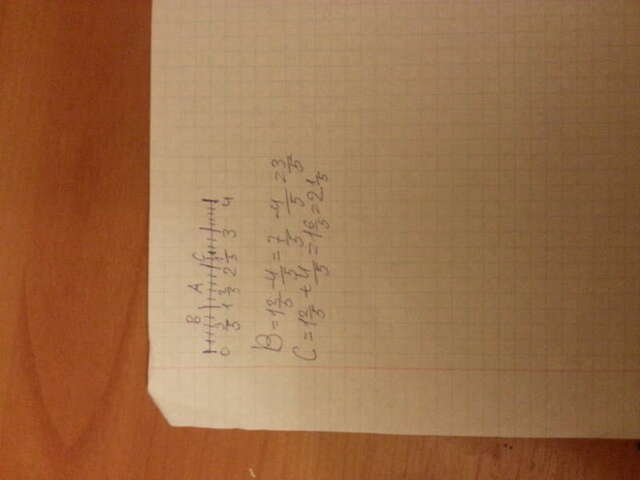 B A C
0 3/5 1 1 2/5 2 1/5 3 4
B = 1 2/5 - 4/5 = 7/5 - 4/5 = 3/5
C = 1 2/5 + 4/5 = 1 6/5 = 2 1/5